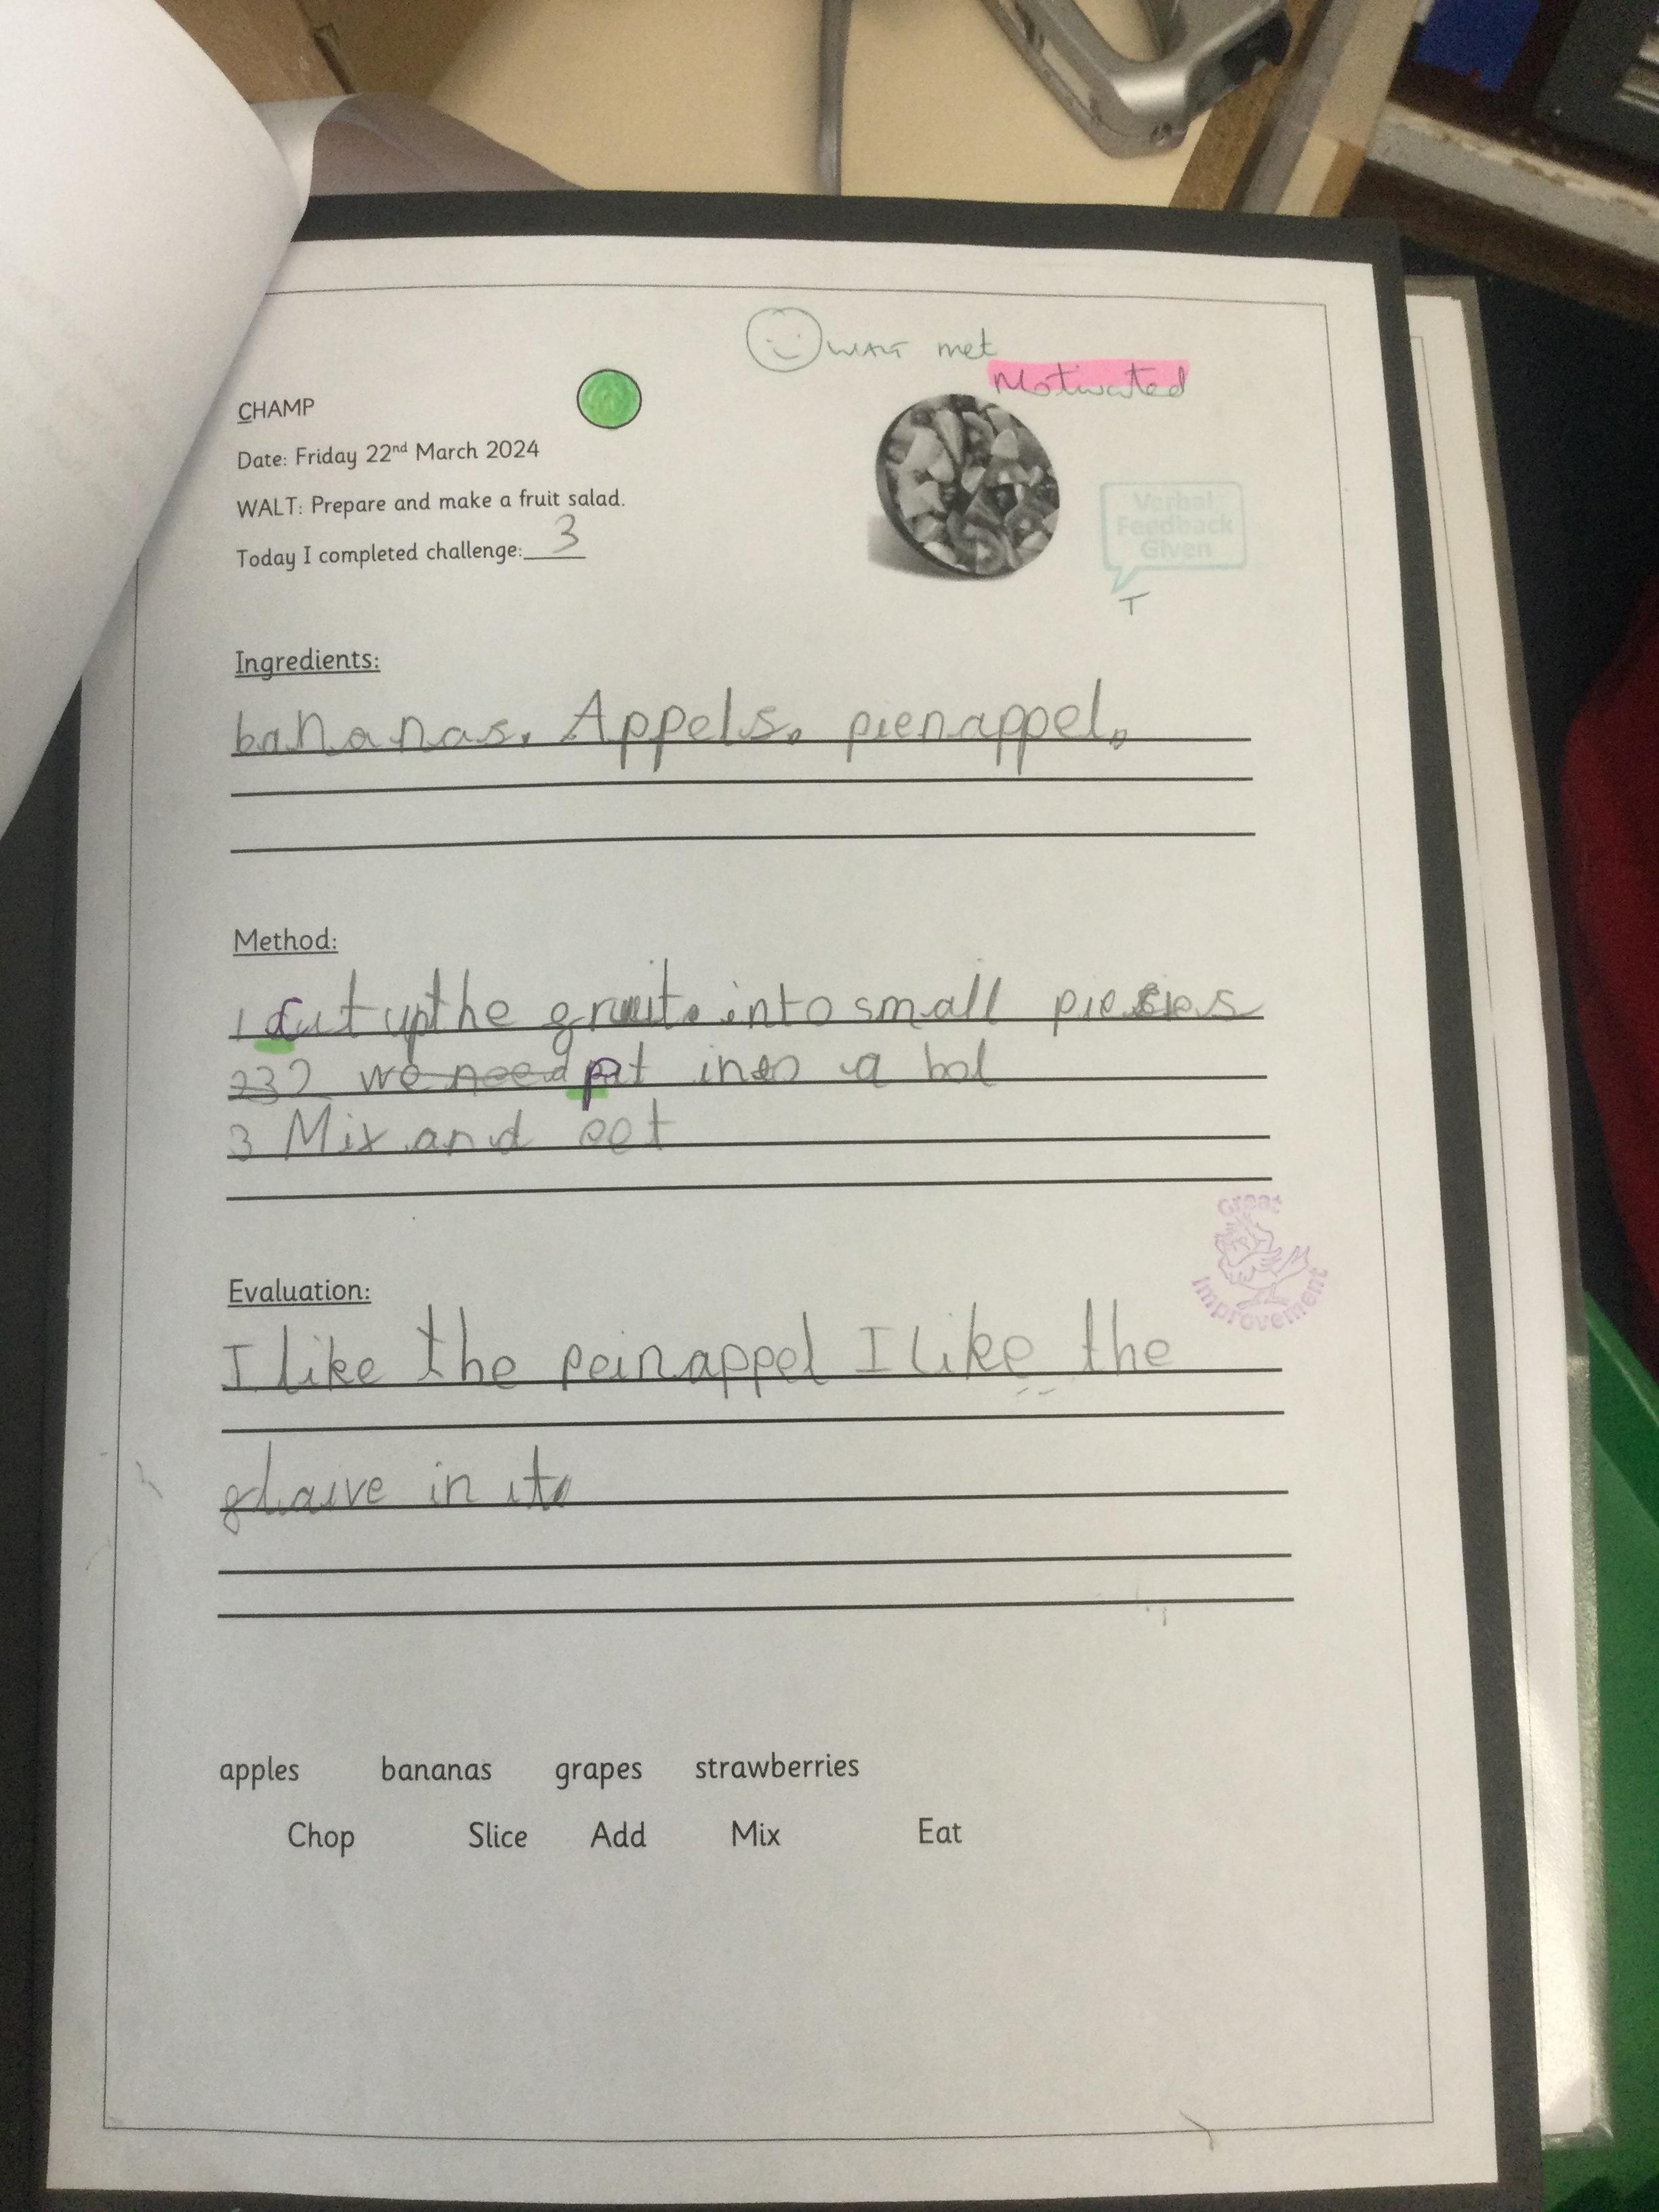 WALT met
Motivated
CHAMP
Date: Friday 22nd March 2024
WALT: Prepare and make a fruit salad.
Today I completed challenge: 3
Verbal
Feedback
Given
T
Ingredients:
bananas. Appels. pienappel.
Method:
1 Cut up the gruit. into small
2 we need put into a bol
3 Mix and eet
Great
Improvement
Evaluation:
I like the peinappel I like the
in it
apples bananas grapes strawberries
Chop Slice Add Mix Eat